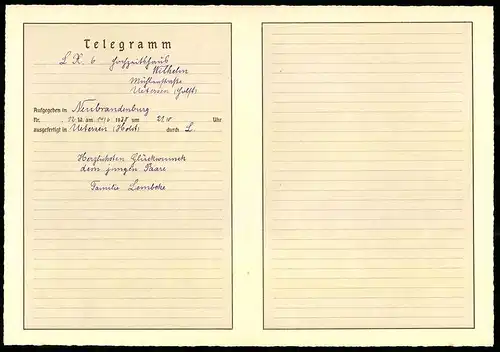 Telegramm
L X 6 Hochzeitshaus
Wilhelm
Mühlenstraße
Uetersen (Holst)
Aufgegeben in Neubrandenburg.
Nr. 12 W. am 14/6 1937 um 21 10 Uhr
ausgefertigt in Uetersen (Holst) durch L.
Herzlichsten Glückwunsch
dem jungen Paare
Familie Lembcke